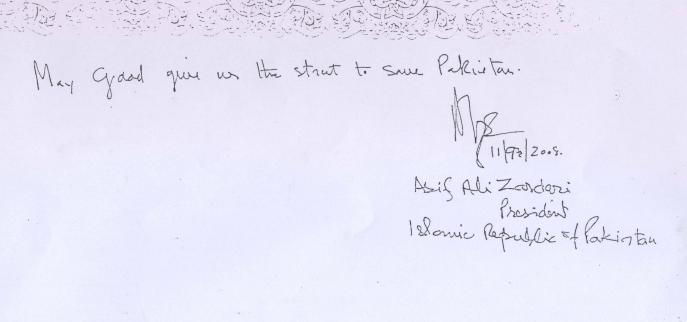 May Goad give us the strut to save Pakistan.
11/9/2008.
Asif Ali Zardari
President
Islamic Republic of Pakistan